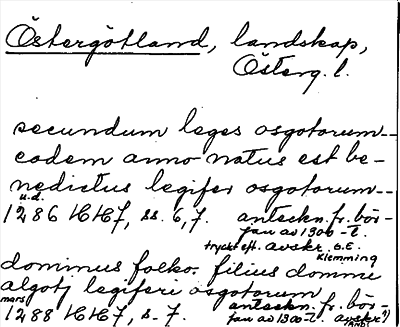 Östergötland, landskap,
Österg. l.
secundum leges osgotorum--
eodem anno natus est be-
nedictus legifer osgotorum--
u.d.
1286 HH7, ss. 6,7. anteckn. fr. bör-
jan av 1300-t.
tryckt eft. avskr. G.E.
Klemming
dominus folko. filius domini
algotj legiferi osgotorum
mars
1288 HH7, s. 7. anteckn. fr. bör-
jan av 1300-t. avskr.